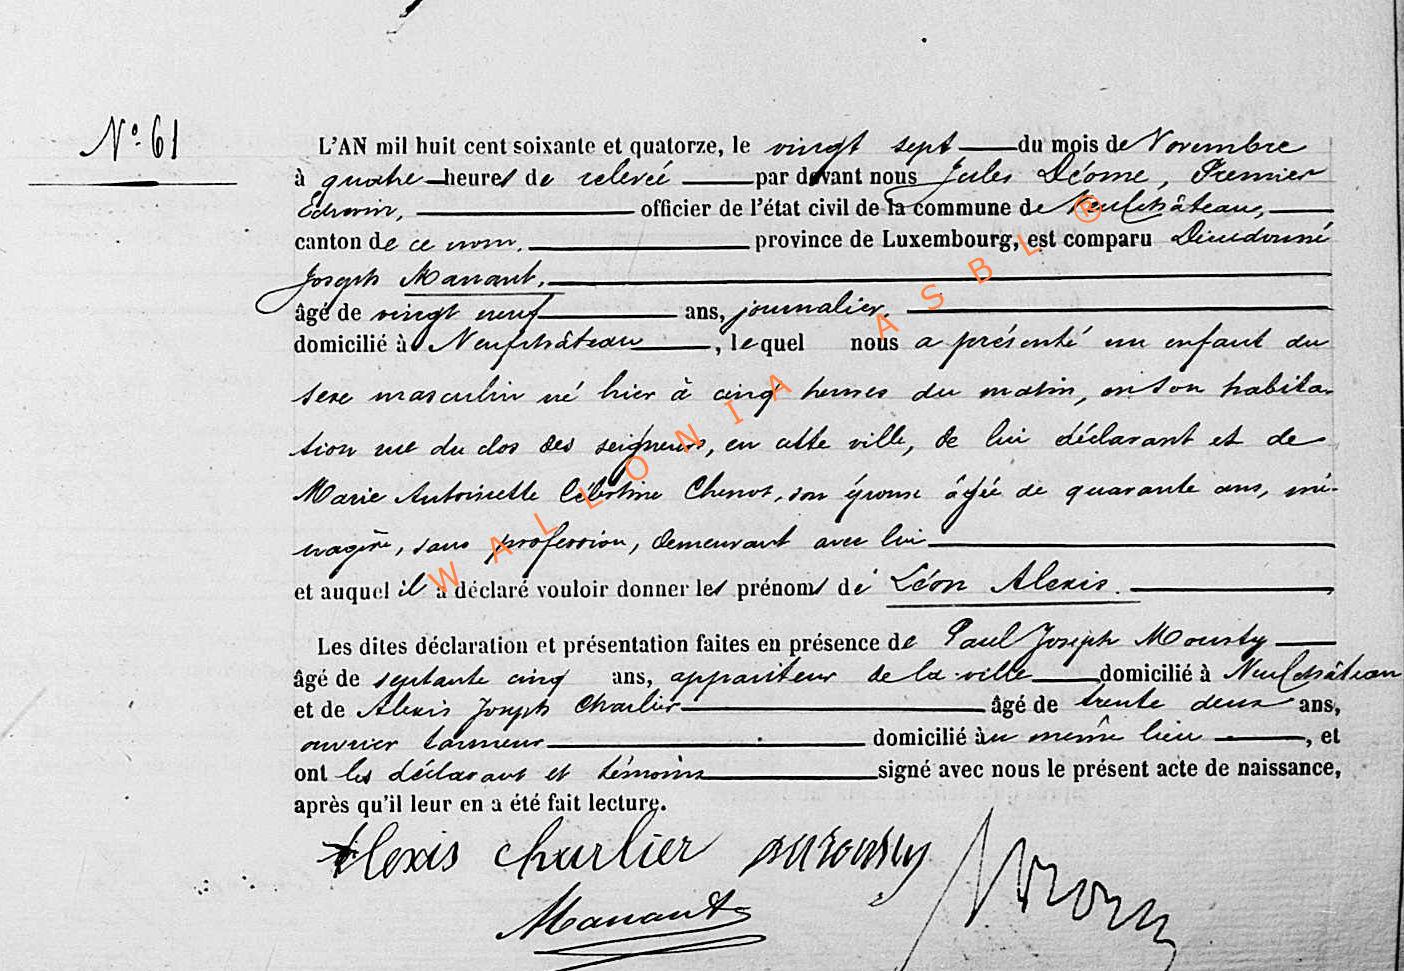 N° 61
L'AN mil huit cent soixante et quatorze, le vingt sept du mois de Novembre
à quatre heures de relevée par devant nous Jules Déome, Premier
Echevin, officier de l'état civil de la commune de Neufchâteau,
canton de ce nom, province de Luxembourg, est comparu Dieudonné
Joseph Manant,
âgé de vingt neuf ans, journalier,
domicilié à Neufchâteau, lequel nous a présenté un enfant du
sexe masculin né hier à cinq heures du matin, en son habita-
tion rue du clos des seigneurs, en cette ville, de lui déclarant et de
Marie Antoinette Célestine Chenot, son épouse âgée de quarante ans, mé-
nagère, sans profession, demeurant avec lui
et auquel il a déclaré vouloir donner les prénoms de Léon Alexis.
Les dites déclaration et présentation faites en présence de Paul Joseph Mousty
âgé de septante cinq ans, appariteur de la ville domicilié à Neufchâteau
et de Alexis Joseph Charlier âgé de trente deux ans,
ouvrier tanneur domicilié au même lieu, et
ont les déclarant et témoins signé avec nous le présent acte de naissance,
après qu'il leur en a été fait lecture.
Alexis Charlier
Manant
WALLONIA ASBL ®